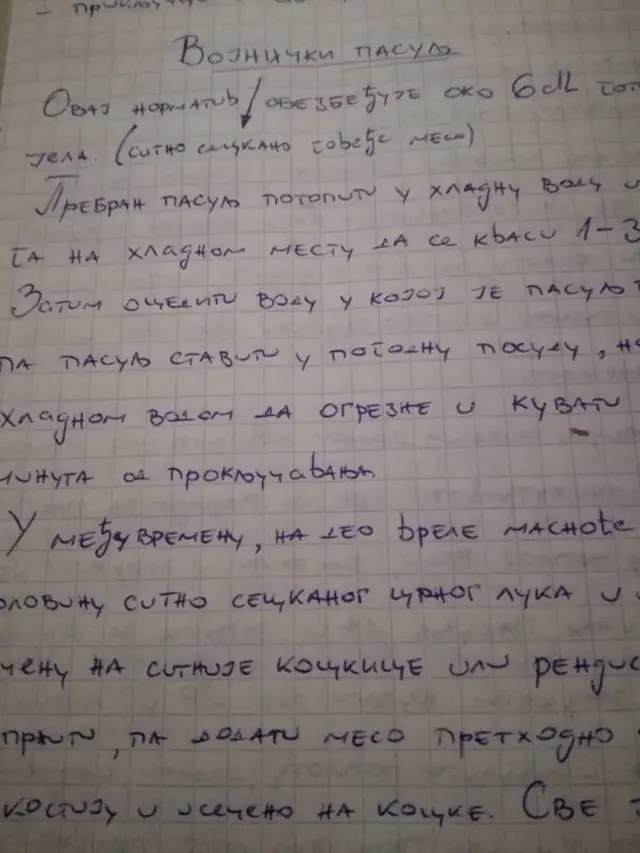 - прокључа
Војнички пасуљ
Овај норматив / обезбеђује око 6 dL гот
јела. (ситно сецкано говеђе месо)
Пребран пасуљ потопити у хладну воду и
га на хладном месту да се кваси 1-3
Затим оцедити воду у којој је пасуљ
па пасуљ ставити у погодну посуду, на
хладном водом да огрезне и кувати
минута од прокључавања
У међувремену, на део вреле масноће
оловину ситно сецканог црног лука и
чену на ситније коцкице или рендис
пржити, па додати месо претходно
костију и исечено на коцке. Све